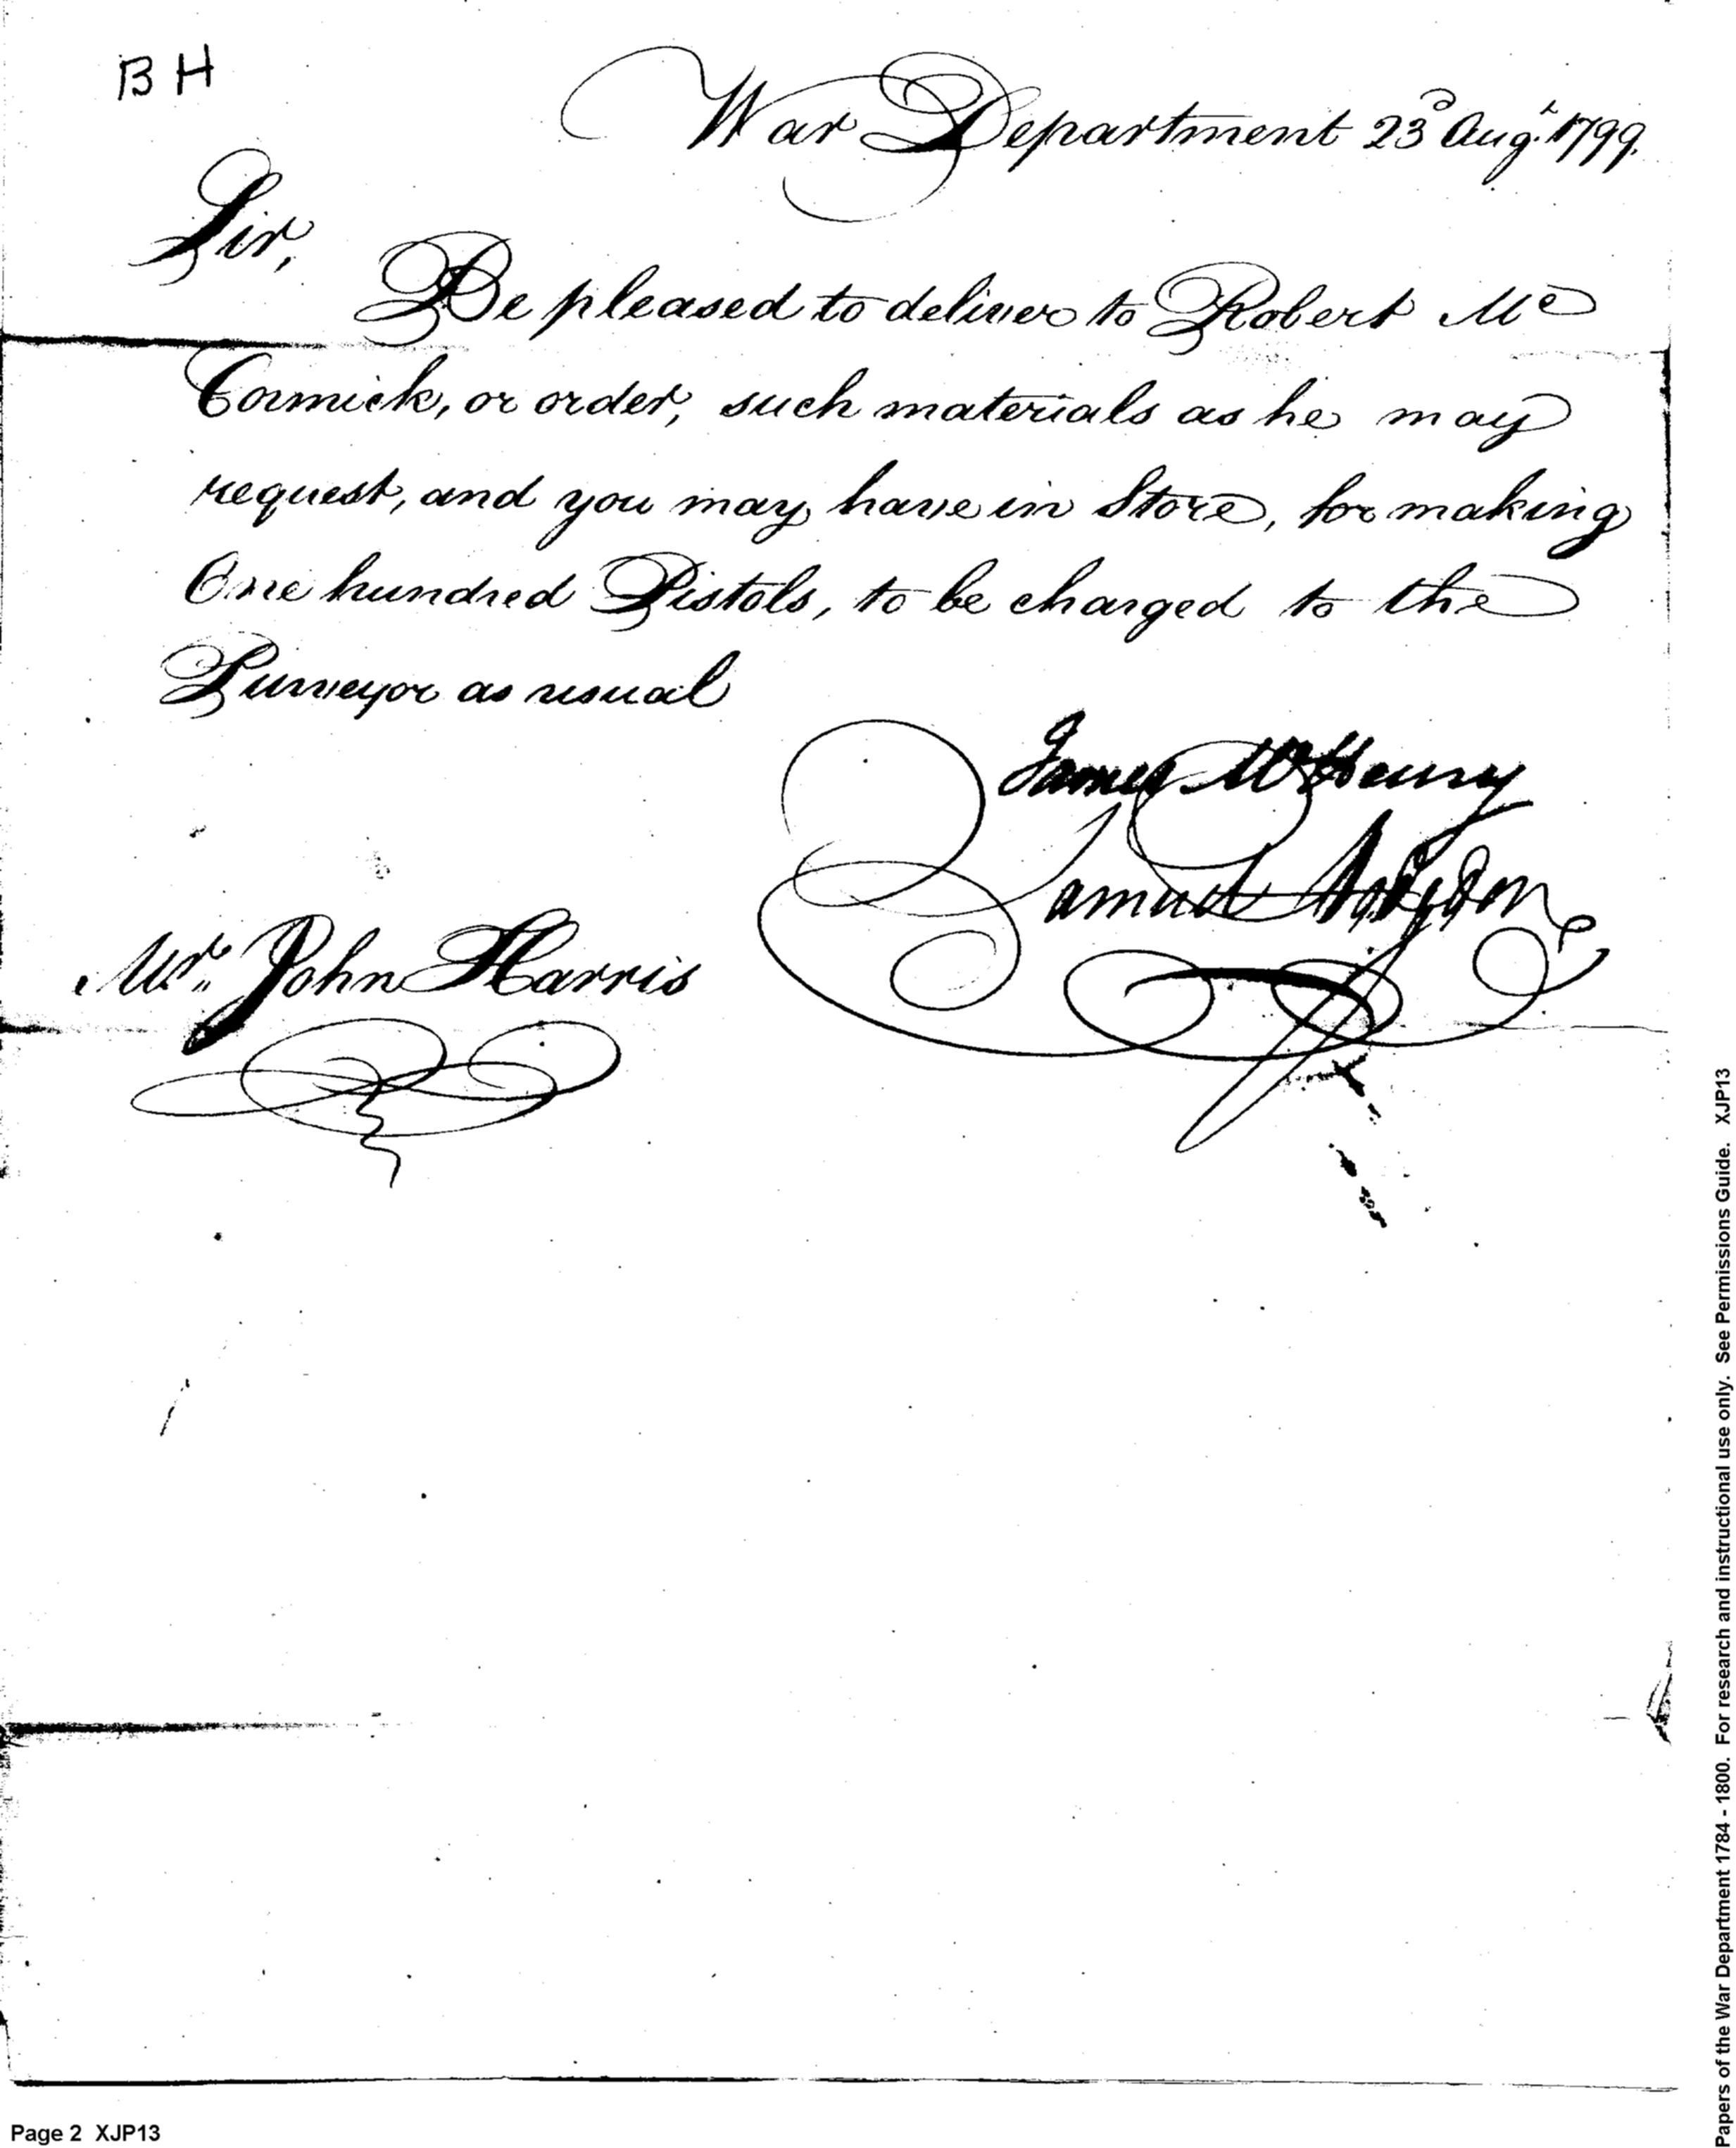 BH
War Department 23d Augt. 1799.
Sir,
Be pleased to deliver to Robert Mc
Cormick, or order, such materials as he may
request, and you may have in Store, for making
One hundred Pistols, to be charged to the
Purveyor as usual
James McHenry
Samuel Hodgdon
Mr. John Harris
Page 2 XJP13
Papers of the War Department 1784 - 1800. For research and instructional use only. See Permissions Guide. XJP13